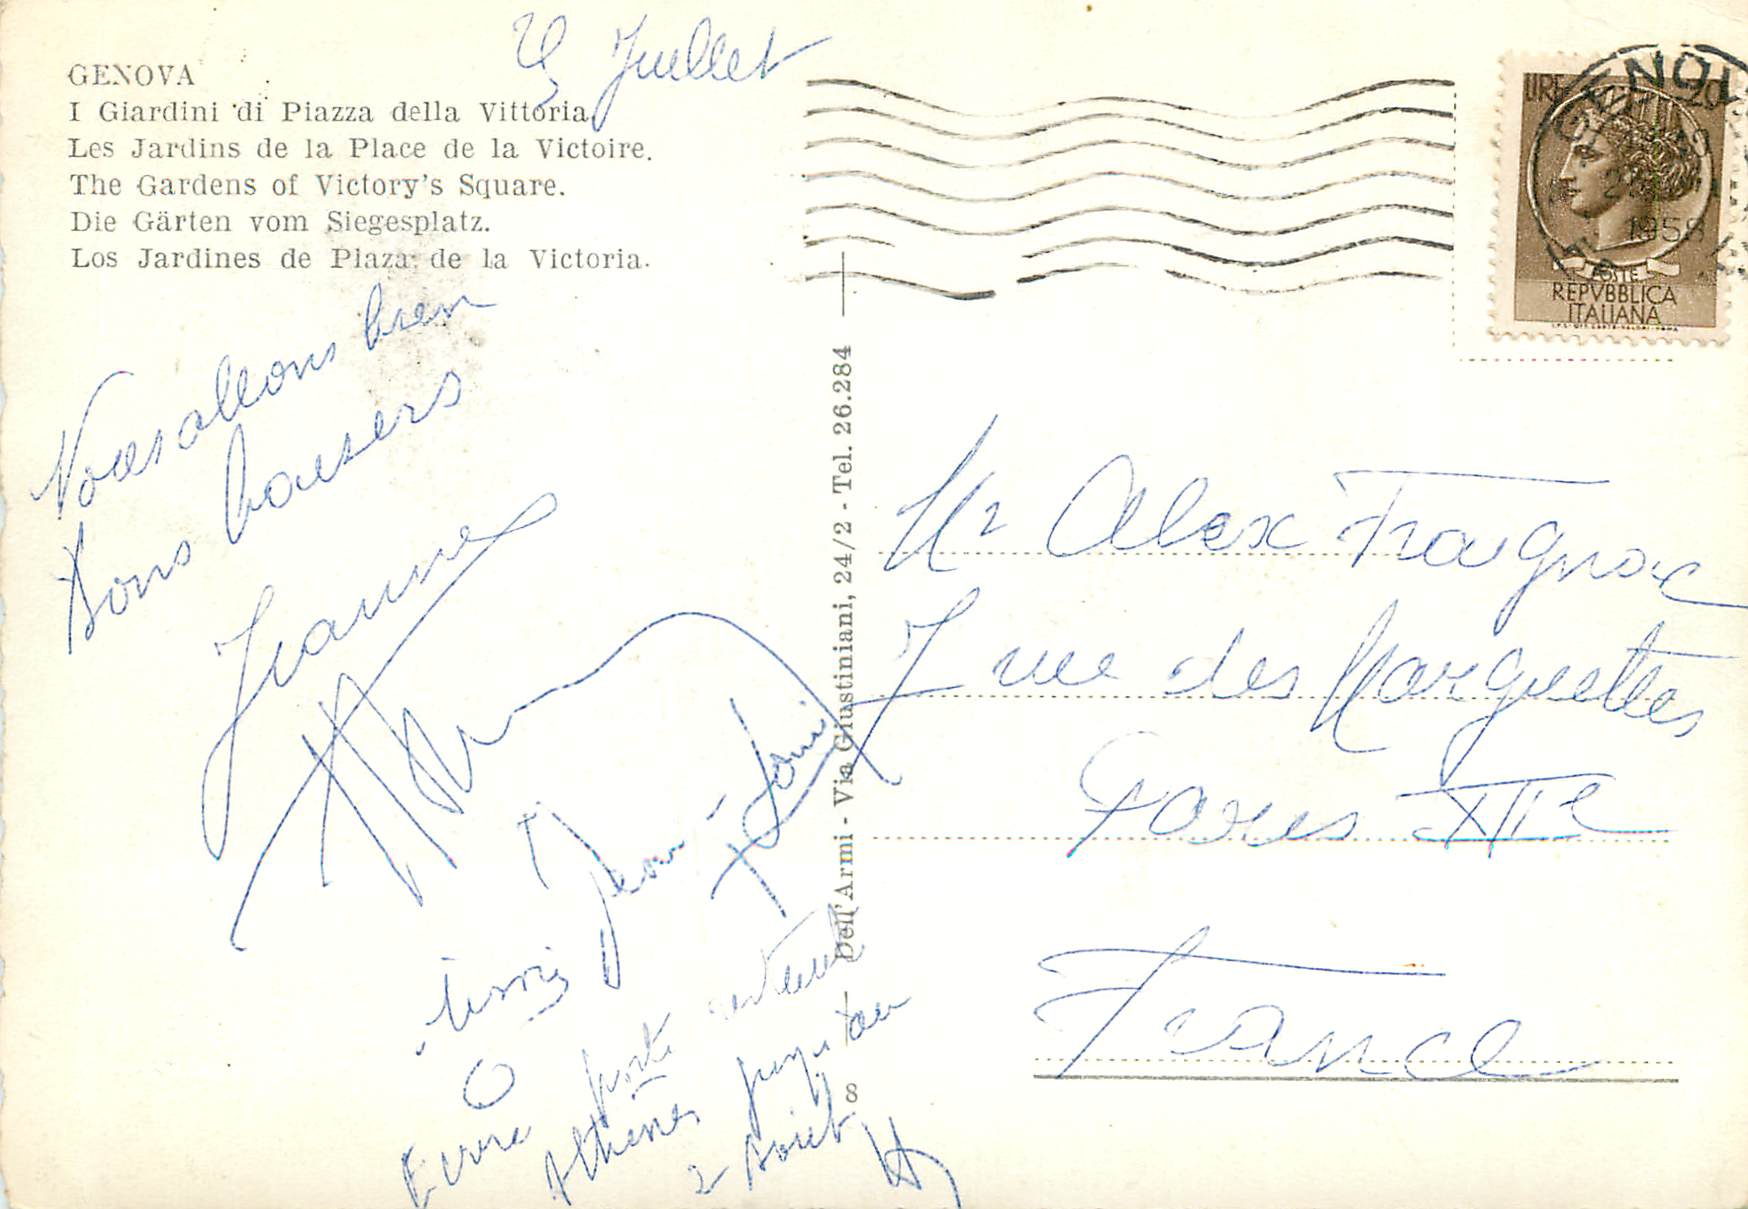 GENOVA
I Giardini di Piazza della Vittoria.
Les Jardins de la Place de la Victoire.
The Gardens of Victory's Square.
Die Gärten vom Siegesplatz.
Los Jardines de Plaza de la Victoria.
Juillet
Nous allons bien
Bons baisers
Jeanne
Jean-Loui
Ecrire poste restante
Athènes jusqu'au
2 Aout
Dell'Armi - Via Giustiniani, 24/2 - Tel. 26.284
8
LIRE 20
POSTE
REPVBBLICA
ITALIANA
GENOV
1958
Mr Alex Fraignac
7 rue des Marguettes
Paris XIIe
France